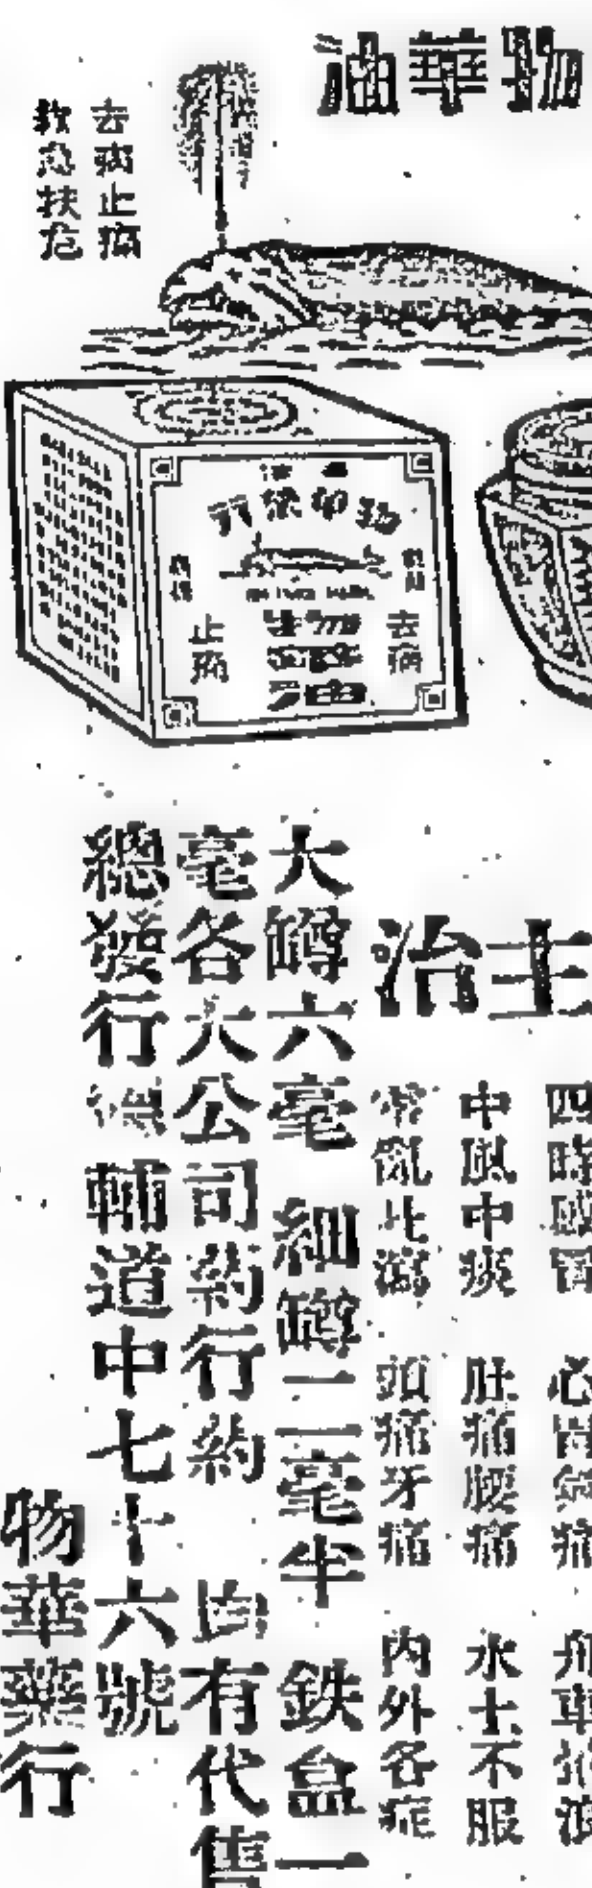 物華油
去病止痛
救急扶危
去病
止痛
油
主治
四時感冒
心胃氣痛
舟車
中風中痰
肚痛腰痛
水土不服
霍亂吐瀉
頭痛牙痛
內外各症
大罇六毫 細罇二毫半 鉄盒一
毫各大公司葯行葯 均有代售
總發行德輔道中七十六號
物華藥行